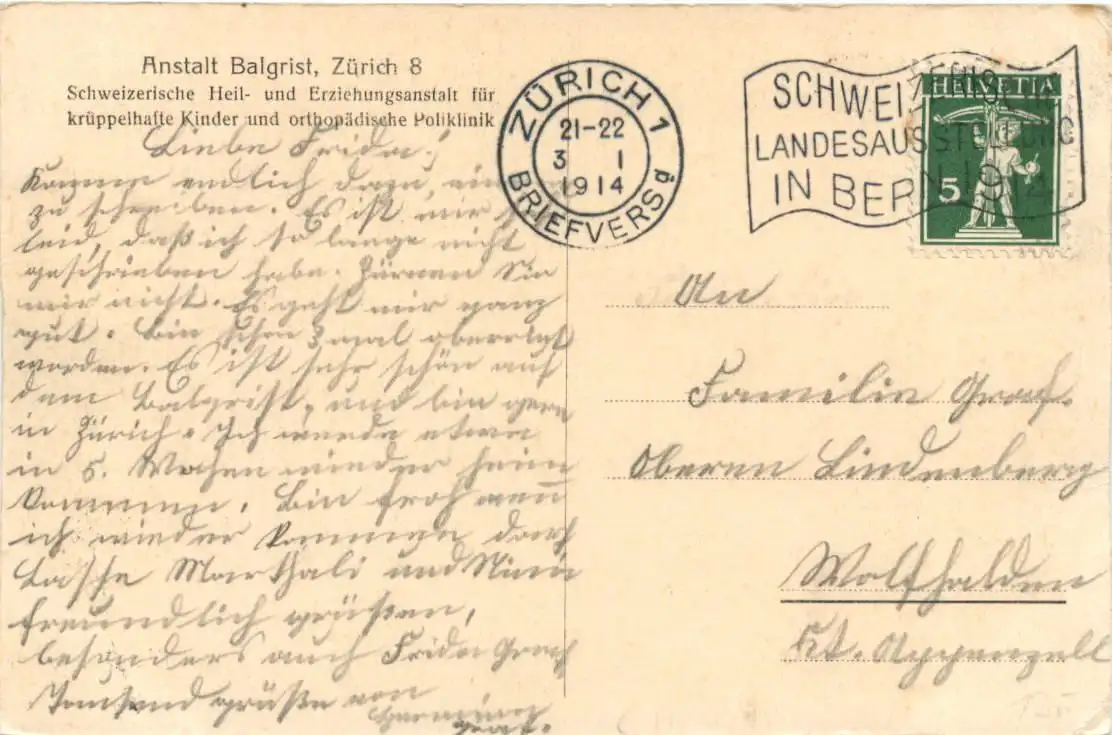 Anstalt Balgrist, Zürich 8
Schweizerische Heil- und Erziehungsanstalt für
krüppelhafte Kinder und orthopädische Poliklinik
Liebe Frida!
Komme endlich dazu, ein
zu schreiben. Es ist mir
leid, daß ich so lange nicht
geschrieben habe. Zürnen Sie
mir nicht. Es geht mir ganz
gut. Bin schon 3 mal
worden. Es ist sehr schön auf
dem Balgrist, und bin gern
in Zürich. Ich werde etwa
in 5. Wochen wieder heim
kommen. Bin froh wenn
ich wieder kommen darf
Lasse Marthali und
freundlich grüßen,
besonders auch Frida Graf
Tausend grüße von
Graf.
ZÜRICH 1
21-22
3 I
1914
BRIEFVERSg
SCHWEIZERISCHE
LANDESAUSSTELLUNG
IN BERN 1914
HELVETIA
5
An
Familie Graf.
Oberen Lindenberg
Wolfhalden
Kt. Appenzell